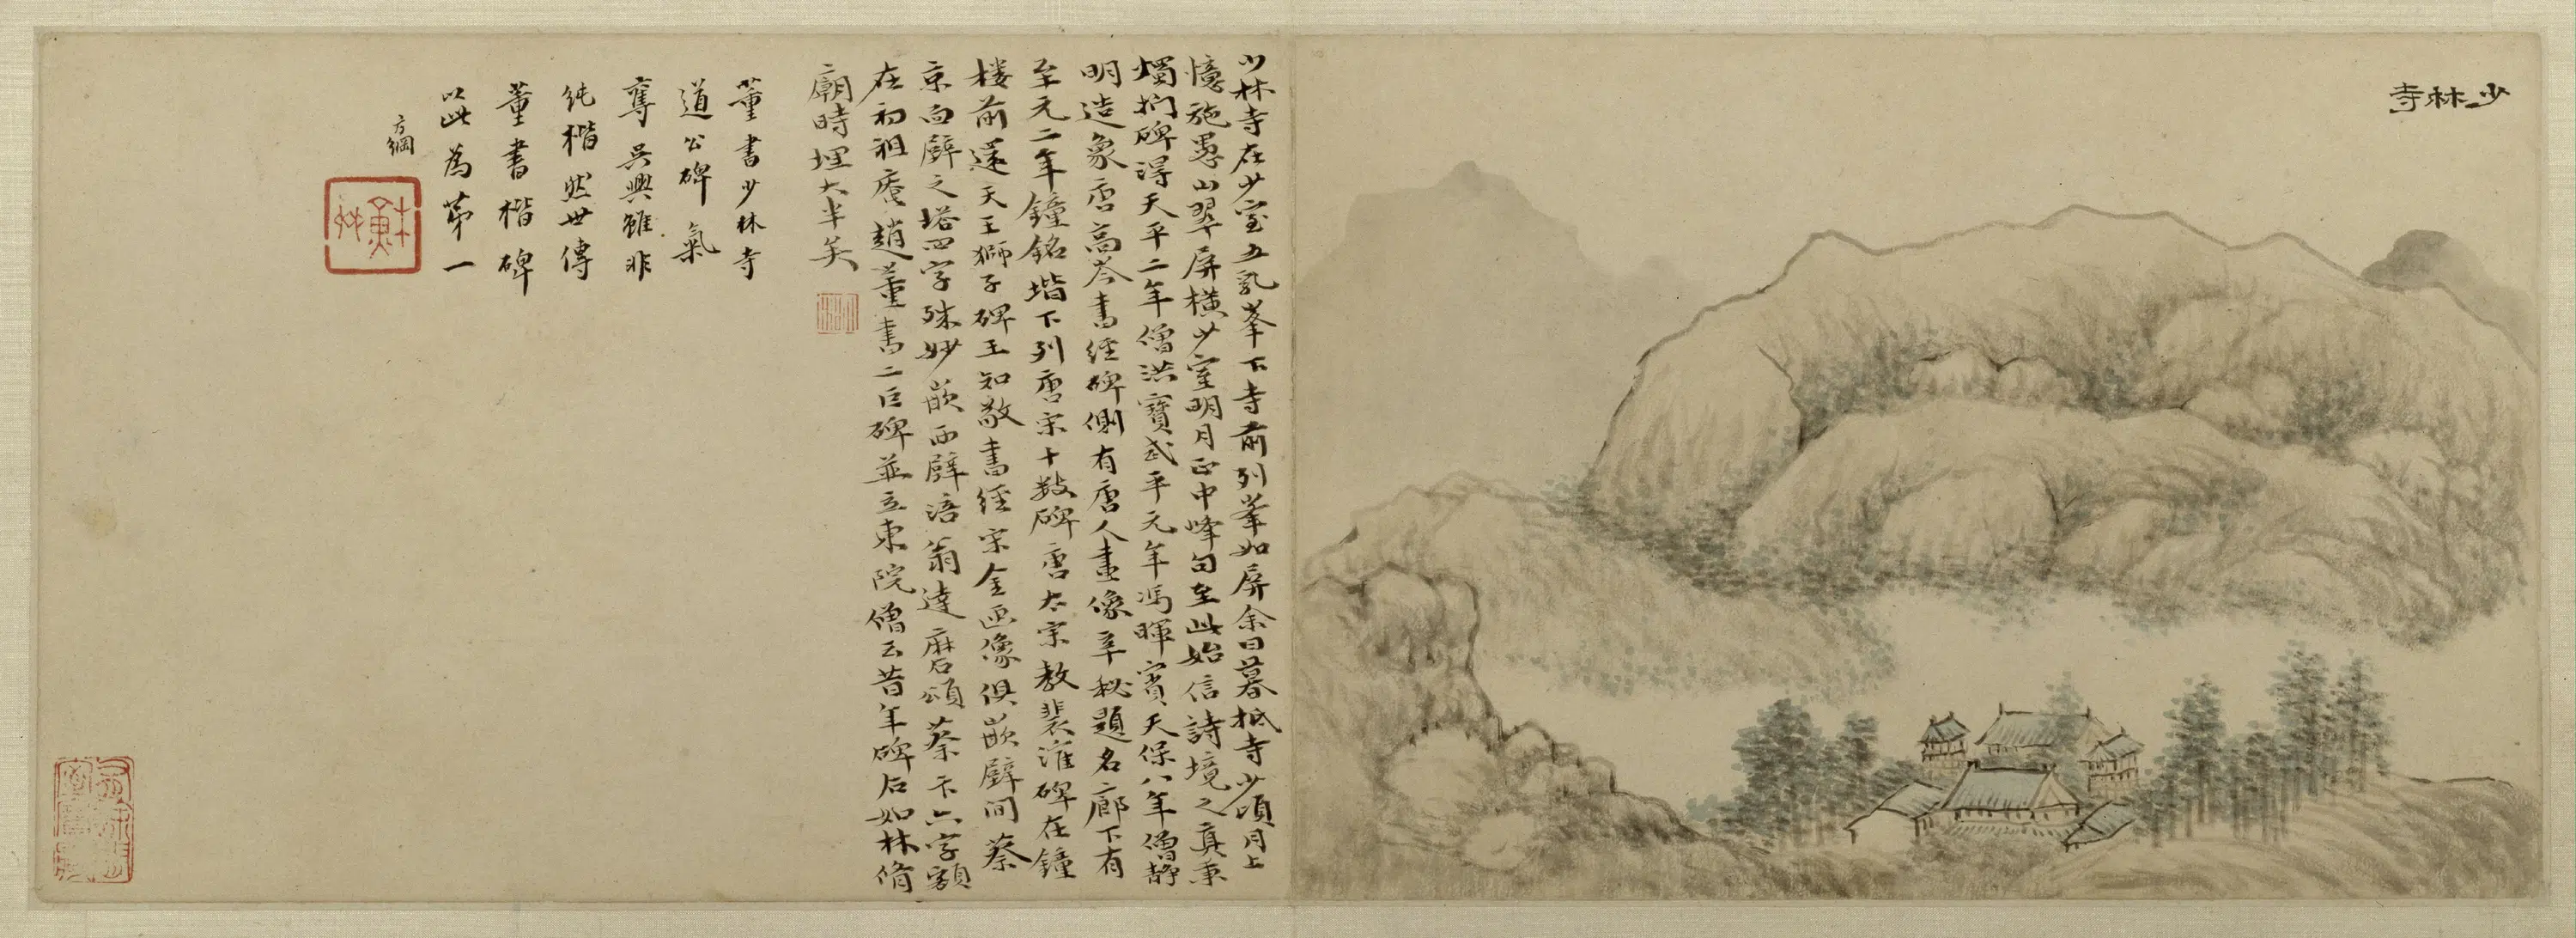 少林寺
少林寺在少室五乳峯下寺前列峯如屏余日暮抵寺少頃月上
憶施愚山翠屏橫少室明月正中峰句至此始信詩境之真秉
燭捫碑得天平二年僧洪寶武平元年馮暉賓天保八年僧靜
明造象唐高岑書經碑側有唐人畫像辛秘題名廊下有
至元二年鐘銘堦下列唐宋十數碑唐太宗教裴漼碑在鐘
樓前還天王獅子碑王知敬書經宋金画像俱嵌壁間蔡
京面壁之塔四字殊妙嵌西壁涪翁達磨頌蔡卞六字額
在初祖庵趙董書二巨碑並立東院僧云昔年碑石如林脩
廟時埋大半矣
董書少林寺
道公碑氣
奪吳興雖非
純楷然世傳
董書楷碑
以此為第一
方綱
蘇